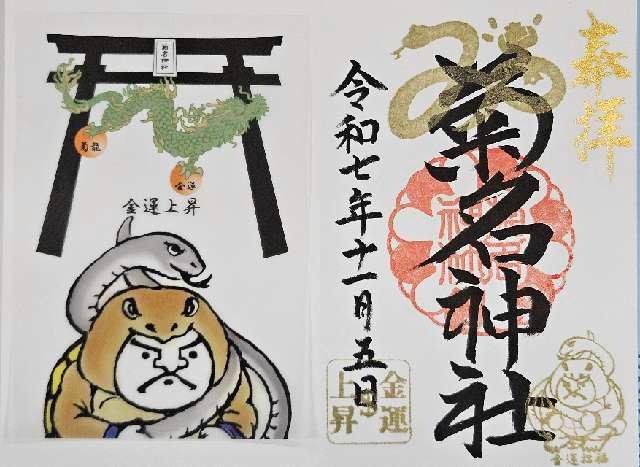 奉拝
菊名神社
令和七年十一月五日
金運
上昇
金運招福
菊名神社
菊龍
金運
金運上昇